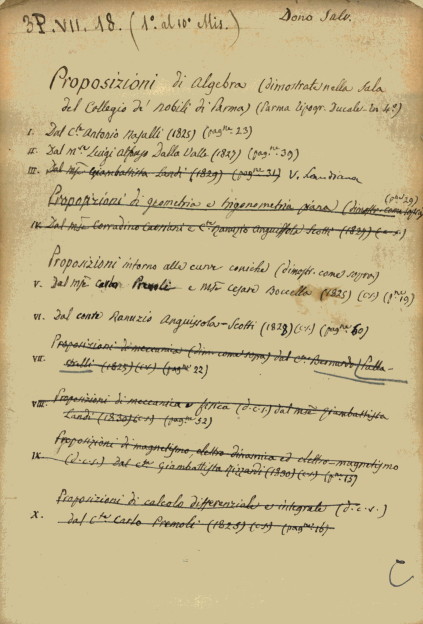 3P. VII. 18. (1º. al 10º Mis.)
Dono Salv.
Proposizioni di Algebra (dimostrate nella Sala
del Collegio de' nobili di Parma) (Parma tipogr. Ducale - in 4º)
I. Dal Cte Antonio Casalli (1825) (pagne. 23)
II. Dal mse Luigi Alfonso Dalla Valle (1827) (pagne. 39)
III. Dal mse Giambattista Landi (1829) (pagne. 31) V. Landiana
Proposizioni di geometria e trigonometria piana (dimostr. come sopra)
(pne 29)
IV. Dal mse Corradino e Cte Ranuzio Anguissola Scotti (1827) (c.s.)
Proposizioni intorno alle curve coniche (dimostr. come sopra)
V. Dal mse Carlo Premoli e mse Cesare Boccella (1825) (c.s) (pne 19)
VI. Dal conte Ranuzio Anguissola-Scotti (1828) (c.s) (pagne. 60)
Proposizioni di meccanica (dim. come sopra) dal Cte Bernardo Palla-
VII. stelli (1825) (c.s) (pagne 22)
VIII. Proposizioni di meccanica e fisica (d.c.s.) dal mse Giambattista
Landi (1830) (c.s) (pagne 32)
Proposizioni di magnetismo, elettro dinamica ed elettro-magnetismo
IX. (d.c.s.) dal Cte Giambattista (1830) (c.s) (pne. 15)
Proposizioni di calcolo differenziale e integrale (d.c.s.)
X. dal Cte Carlo Premoli (1825) (c.s) (pagne 16)
C